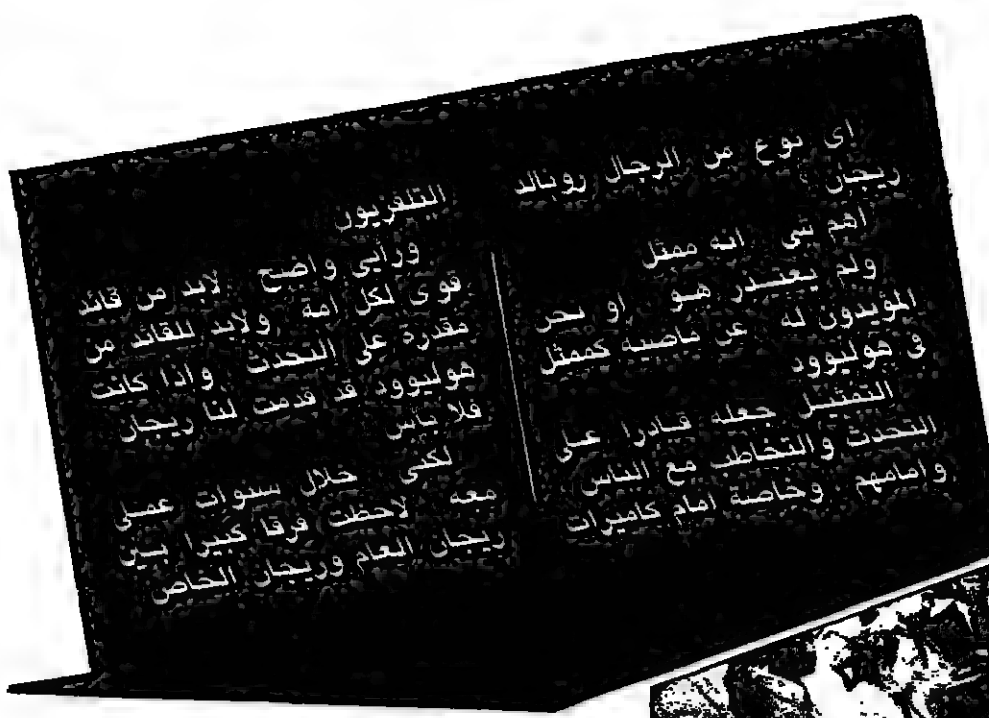 اى نوع من الرجال رونالد
ريجان ؟
اهم شي انه ممثل
ولم يعتذر هو او نحن
المؤيدون له عن ماضيه كممثل
فى هوليوود
التمثيل جعله قادرا على
التحدث والتخاطب مع الناس
وامامهم وخاصة امام كاميرات
التلفزيون
ورأيى واضح لابد من قائد
قوى لكل امة ولابد للقائد من
مقدرة على التحدث واذا كانت
هوليوود قد قدمت لنا ريجان
فلا بأس
لكنى خلال سنوات عملى
معه لاحظت فرقا كبيرا بين
ريجان العام وريجان الخاص